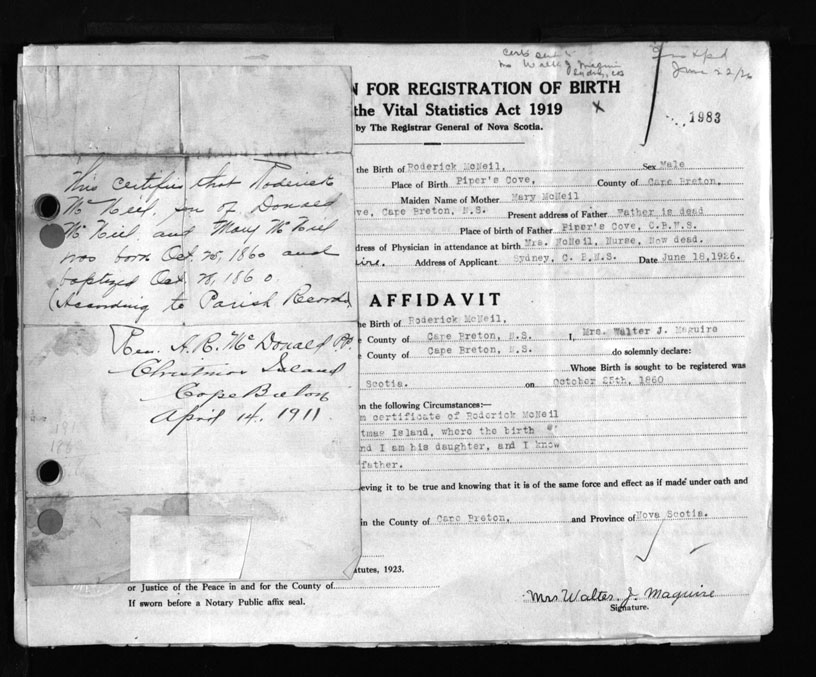 Mrs Walter J. Maguire
June 22/26
N FOR REGISTRATION OF BIRTH
the Vital Statistics Act 1919
by The Registrar General of Nova Scotia.
1983
This certifies that Roderick
McNeil, son of Donald
McNeil and Mary McNeil
was born Oct. 25, 1860 and
baptized Oct 28, 1860
(According to Parish Records)
Rev. A. R. McDonald P.P.
Christmas Island
Cape Breton
April 14, 1911
the Birth of Roderick McNeil, Sex Male
Place of Birth Piper's Cove, County of Cape Breton,
Maiden Name of Mother Mary McNeil
ve, Cape Breton, N.S. Present address of Father Father is dead
Place of birth of Father Piper's Cove, C.B.N.S.
dress of Physician in attendance at birth Mrs. McNeil, Nurse, Now dead.
ire. Address of Applicant Sydney, C. B.N.S. Date June 18,1926.
AFFIDAVIT
he Birth of Roderick McNeil,
e County of Cape Breton, N.S. I, Mrs. Walter J. Maguire
e County of Cape Breton, N.S. do solemnly declare:
Whose Birth is sought to be registered was
Scotia. on October 25th, 1860
on the following Circumstances:—
m certificate of Roderick McNeil
tmas Island, where the birth
nd I am his daughter, and I know
father.
ieving it to be true and knowing that it is of the same force and effect as if made under oath and
in the County of Cape Breton, and Province of Nova Scotia.
atutes, 1923.
or Justice of the Peace in and for the County of
If sworn before a Notary Public affix seal.
Mrs Walter J. Maguire
Signature.